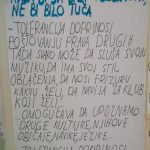 NE BI BILO TUČA
- TOLERANCIJA DOPRINOSI
POŠTOVANJU PRAVA DRUGIH
TADA SVAKO MOŽE DA SLUŠA SVOJU
MUZIKU, DA IMA SVOJ STIL
OBLAČENJA, DA NOSI FRIZURU
KAKVU ŽELI, DA NAVIJA ZA KLUB
KOJI ŽELI...
- OMOGUĆAVA DA UPOZNAMO
DRUGE KULTURE, NJIHOVE
OBIČAJE, NAVIKE, JEZIKE.
- TOLERANCIJA DOPRINOSI